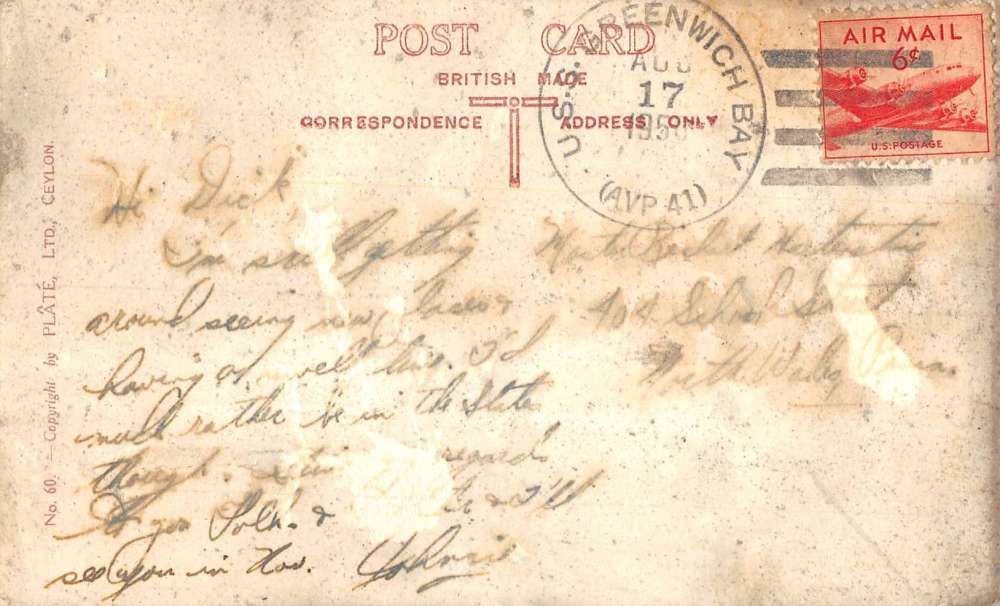 POST CARD
BRITISH MADE
CORRESPONDENCE ADDRESS ONLY
U.S.S. GREENWICH BAY
AUG
17
1950
(AVP 41)
AIR MAIL
6¢
U.S. POSTAGE
No. 60. — Copyright by PLÂTÉ, LTD., CEYLON.
Hi Dick,
I'm still getting
around seeing new places &
having a swell time. I'd
much rather be in the States
though. regards
to your Folks & & I'll
see you in Nov. Johnnie
404 School Street
North Wales Penna.